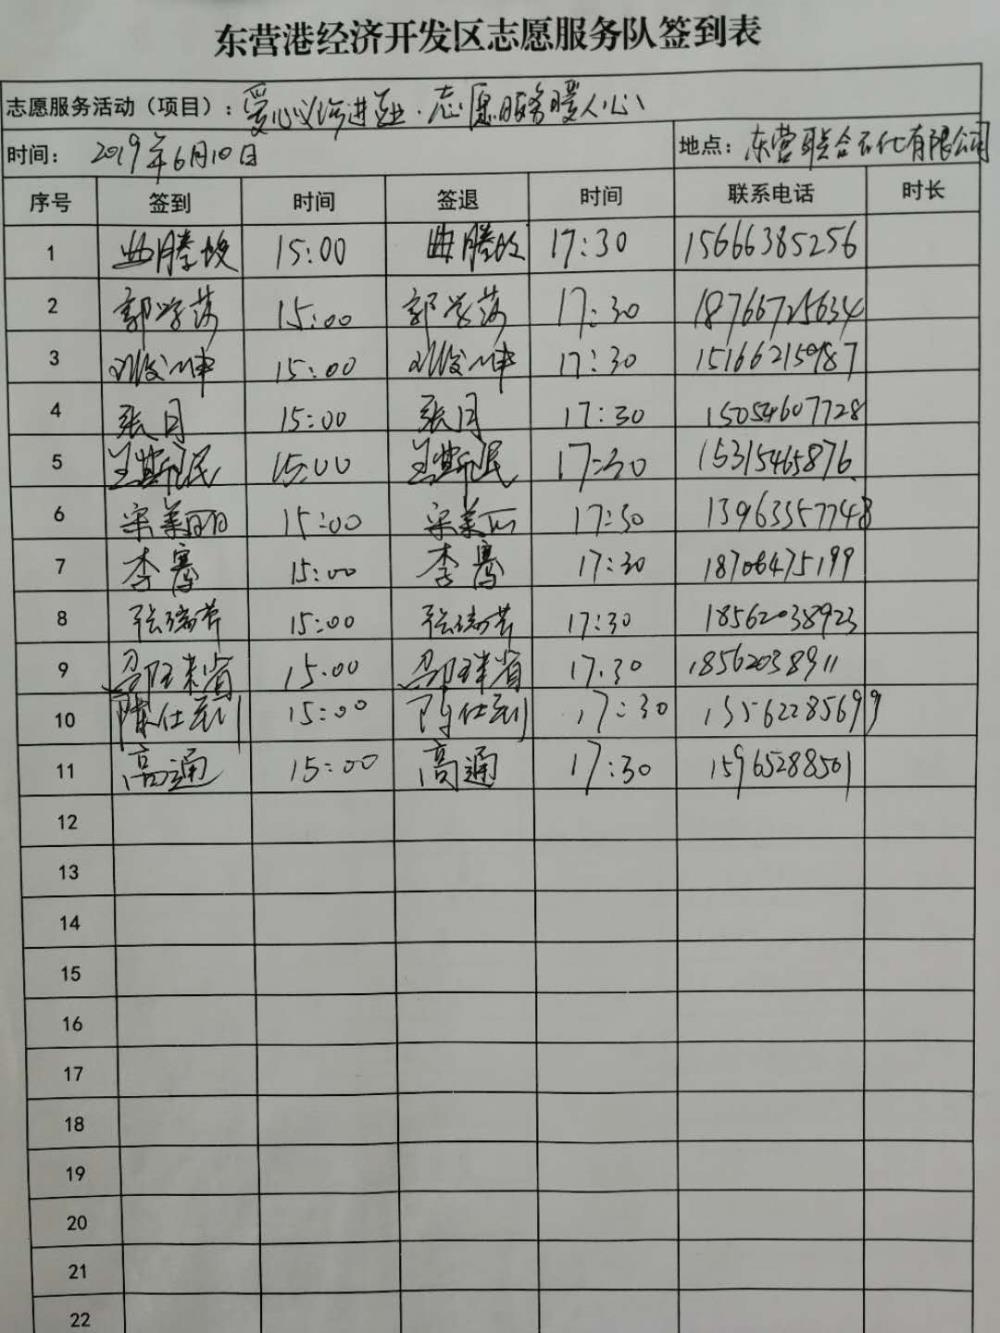 东营港经济开发区志愿服务队签到表
志愿服务活动（项目）：爱心义诊进企业·志愿服务暖人心
时间： 2019年6月10日 地点：东营联合石化有限公司
序号 签到 时间 签退 时间 联系电话 时长
1 曲腾 15:00 曲腾 17:30 15666385256
2 郭学 15:00 郭学 17:30 18766725634
3 15:00 17:30 15166215987
4 张月 15:00 张月 17:30 15054607728
5 15:00 17:30 15315465876
6 宋美丽 15:00 宋美丽 17:30 13963557748
7 李骞 15:00 李骞 17:30 18706475199
8 张瑞芹 15:00 张瑞芹 17:30 18562038923
9 15:00 17:30 18562038911
10 陈仕 15:00 陈仕 17:30 13562285699
11 高通 15:00 高通 17:30 15965288501
12
13
14
15
16
17
18
19
20
21
22